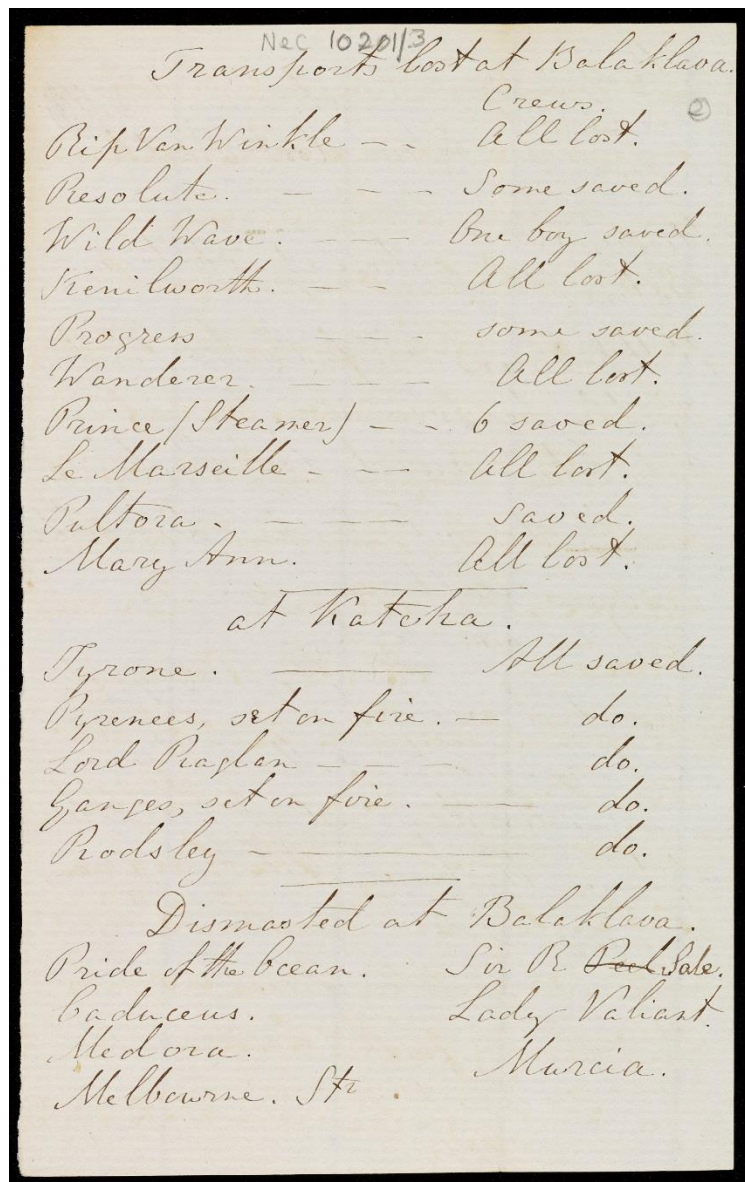 Nec 10201/3
Transports lost at Balaklava.
Crews.
②
Rip Van Winkle - - All lost.
Resolute. - - - Some saved.
Wild Wave. - - One boy saved.
Kenilworth. - - All lost.
Progress - - - some saved.
Wanderer. - - - All lost.
Prince (Steamer) - - 6 saved.
Le Marseille - - - All lost.
Pultora - - - - Saved.
Mary Ann. All lost.
at Katcha.
Tyrone. — All saved.
Pyrenees, set on fire. — do.
Lord Raglan - - - do.
Ganges, set on fire. — do.
Rodsley - — do.
Dismasted at Balaklava.
Pride of the Ocean. Sir R Peel Sale.
Caduceus. Lady Valiant.
Medora. Murcia.
Melbourne. Str.